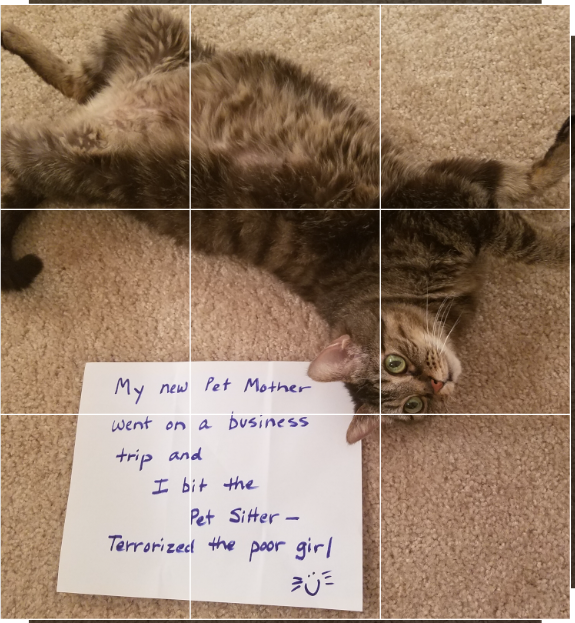 My new Pet Mother
went on a business
trip and
I bit the
Pet Sitter –
Terrorized the poor girl